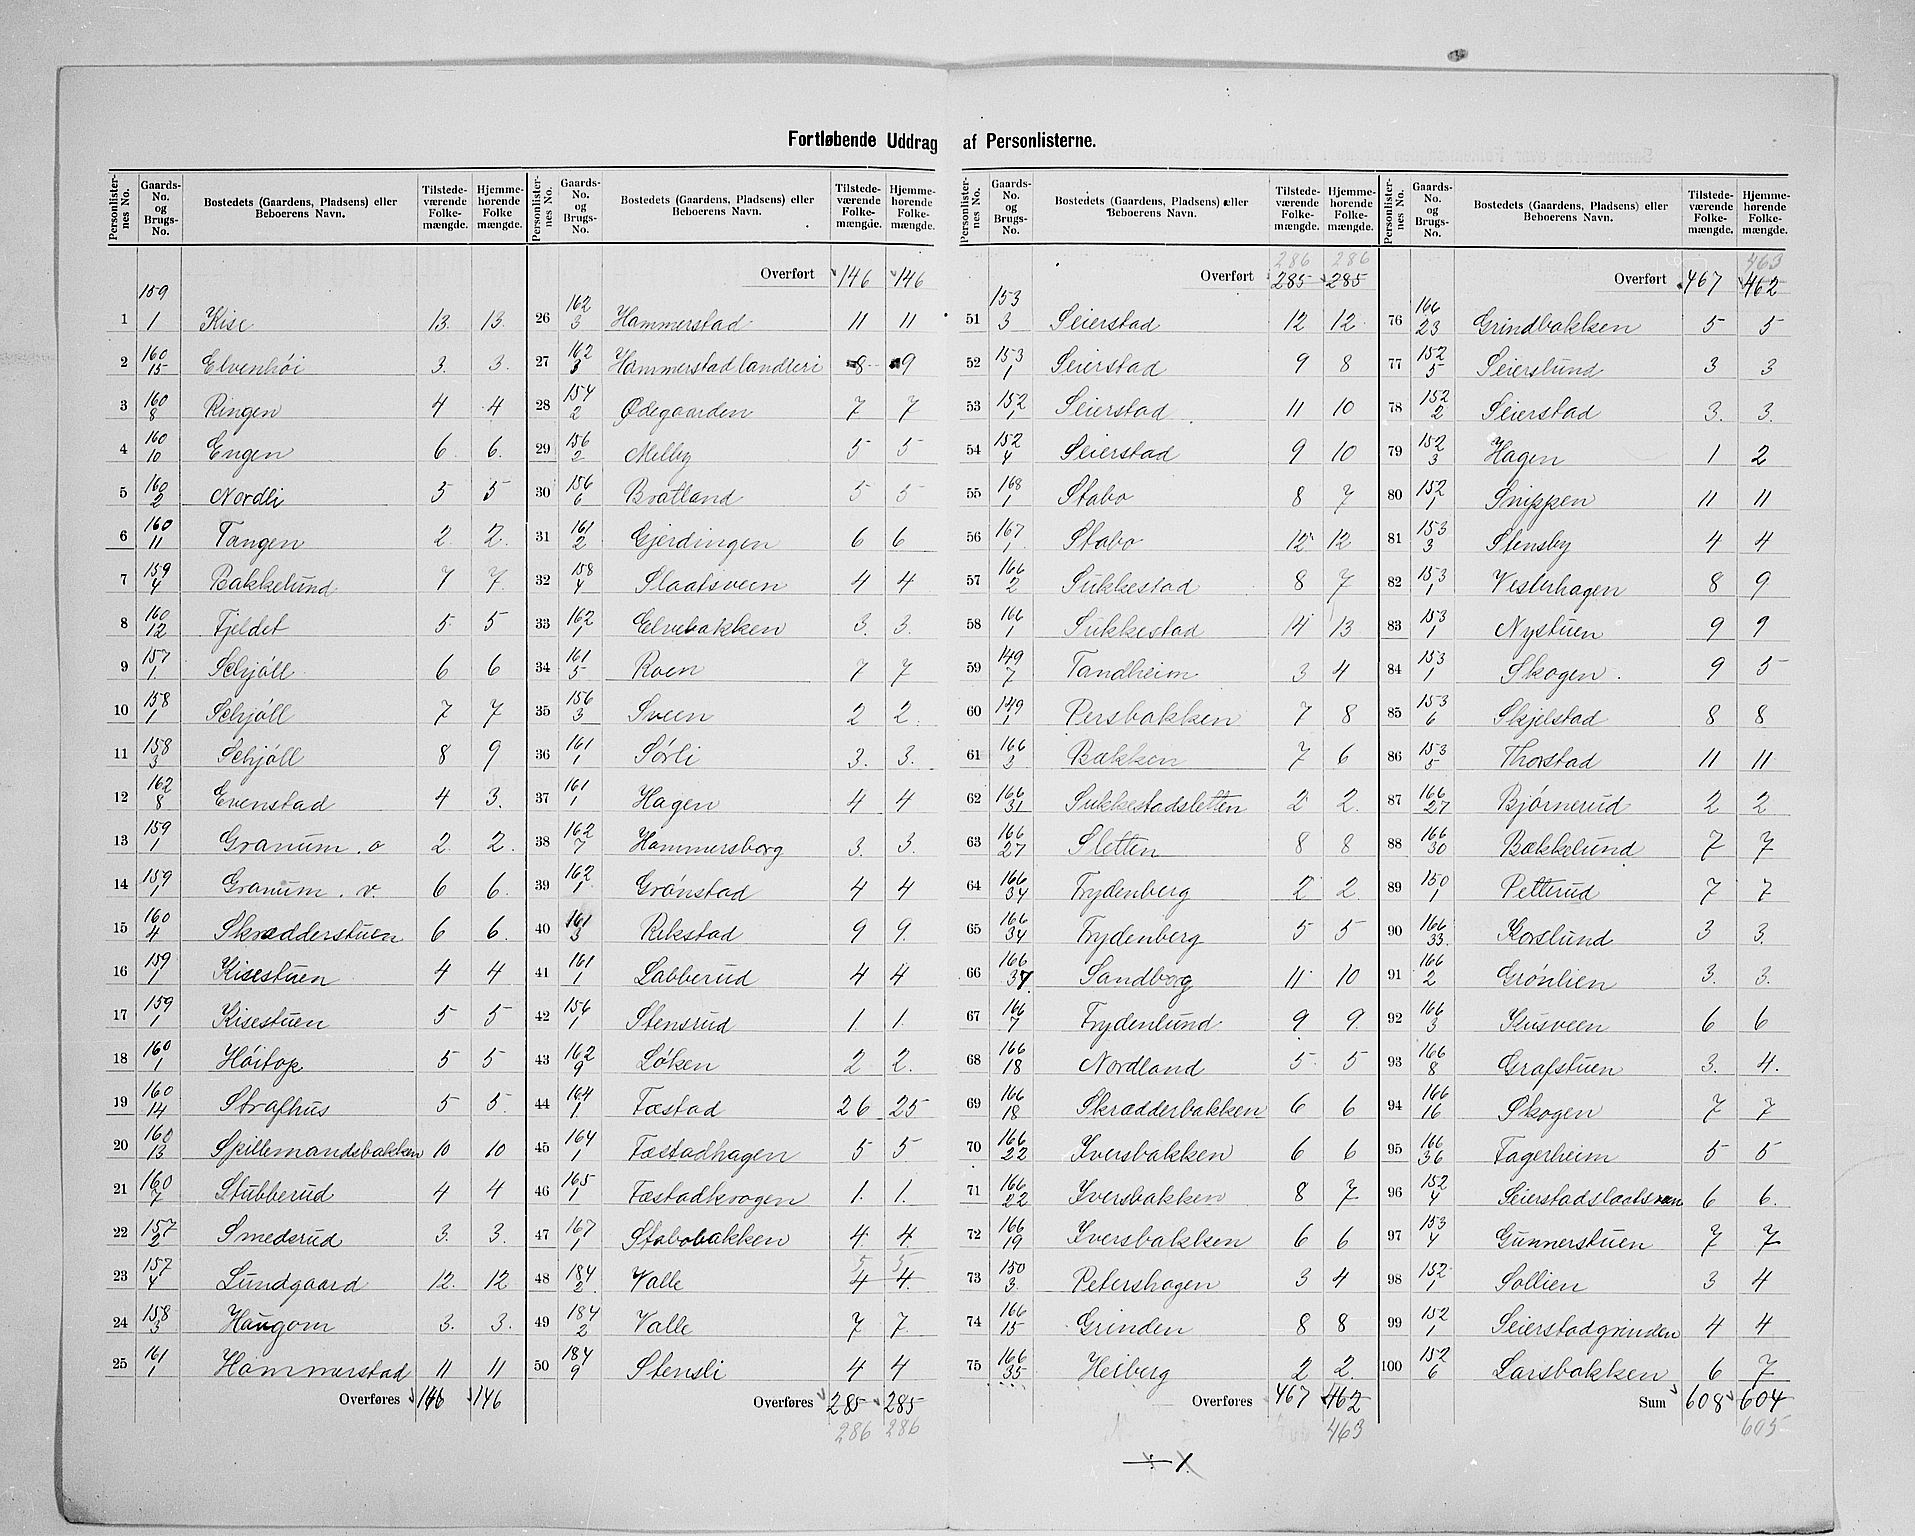 Fortløbende Uddrag af Personlisterne.
Personlister-nes No. | Gaards-No. og Brugs-No. | Bostedets (Gaardens, Pladsens) eller Beboerens Navn. | Tilstede-værende Folke-mængde. | Hjemme-hørende Folke-mængde.
1 159/1 Kise 13. 13.
2 160/15 Elvenhöi 3. 3.
3 160/8 Ringen 4 4
4 160/10 Engen 6 6.
5 160/2 Nordli 5 5
6 160/11 Tangen 2. 2.
7 159/4 Bakkelund 7 7.
8 160/12 Fjeldet 5. 5
9 157/1. Schjöll 6 6
10 158/1 Schjöll 7 7
11 158/3 Schjöll 8 9
12 162/8 Evenstad 4 3.
13 159/1 Granum. o 2. 2.
14 159/1 Granum. v. 6 6.
15 160/4 Skrædderstuen 6 6.
16 159/1 Kisestuen 4 4
17 159/1 Kisestuen 5 5
18 160/1 Höitop 5 5
19 160/14 Strafhus 5 5.
20 160/13 Spillemandsbakken 10 10
21 160/7 Stubberud 4 4
22 157/2 Smedsrud 3. 3.
23 157/4 Lundgaard 12. 12
24 158/3 Haugom 3. 3.
25 161/1 Hammerstad 11 11
Overføres 146 146
Personlister-nes No. | Gaards-No. og Brugs-No. | Bostedets (Gaardens, Pladsens) eller Beboerens Navn. | Tilstede-værende Folke-mængde. | Hjemme-hørende Folke-mængde.
Overført 146 146
26 162/3 Hammerstad 11 11
27 162/3 Hammerstad landleri 8 9
28 154/2 Ødegaarden 7 7
29 156/2 Melby 5 5
30 156/6 Bratland 5 5
31 161/2 Gjerdingen 6 6
32 158/4 Slaatsveen 4 4
33 162/1 Elvebakken 3. 3.
34 161/5 Roen 7 7
35 156/3 Sveen 2 2.
36 161/1 Sörli 3. 3.
37 161/1 Hagen 4 4
38 162/7 Hammersborg 3. 3.
39 162/1 Grönstad 4 4
40 161/3 Rikstad 9 9.
41 161/1 Labberud 4 4
42 156/1 Stensrud 1. 1.
43 162/9 Løken 2 2.
44 164/1 Fæstad 26 25
45 164/1 Fæstadhagen 5 5
46 165/1 Fæstadkrogen 1. 1.
47 167/1 Stabobakken 4 4.
48 184/2 Valle 4 4. 5 5
49 184/2 Valle 7 7.
50 184/9 Stensli 4 4
Overføres 285 285
286 286
Personlister-nes No. | Gaards-No. og Brugs-No. | Bostedets (Gaardens, Pladsens) eller Beboerens Navn. | Tilstede-værende Folke-mængde. | Hjemme-hørende Folke-mængde.
286 286
Overført 285 285
51 153/3 Seierstad 12 12.
52 153/1 Seierstad 9 8
53 152/1 Seierstad 11 10
54 152/4 Seierstad 9 10
55 168/1 Stabo 8 7
56 167/1 Stabo 12 12
57 166/2 Sukkestad 8 7
58 166/1 Sukkestad 14 13
59 149/7 Tandheim 3 4
60 149/1 Persbakken 7 8
61 166/3 Bakken 7 6
62 166/31 Sukkestadsletten 2 2.
63 166/27 Sletten 8 8
64 166/34 Frydenberg 2 2.
65 166/34 Frydenberg 5 5
66 166/37. Sandborg 11 10
67 166/7 Frydenlund 9 9.
68 166/18 Nordland 5 5
69 166/18 Skrædderbakken 6 6
70 166/22 Iversbakken 6 6
71 166/22 Iversbakken 8 7
72 166/19 Iversbakken 6 6
73 150/3. Petershagen 3 4
74 166/15 Grinden 8 8
75 166/35 Heiberg 2 2.
Overføres 467 462
463
÷ 1.
Personlister-nes No. | Gaards-No. og Brugs-No. | Bostedets (Gaardens, Pladsens) eller Beboerens Navn. | Tilstede-værende Folke-mængde. | Hjemme-hørende Folke-mængde.
463
Overført 467 462
76 166/23 Grindbakken 5 5
77 152/5 Seierslund 3 3
78 152/2 Seierstad 3. 3.
79 152/3 Hagen 1 2
80 152/1 Snippen 11 11
81 153/3 Stensby 4 4
82 153/1 Vesterhagen 8 9
83 153/1 Nystuen 9 9
84 153/1 Skogen. 9 5
85 153/6 Skjelstad 8 8
86 153/5 Thorstad 11 11
87 166/27 Bjørnerud 2 2
88 166/30 Bækkelund 7 7
89 150/1 Petterud 7 7
90 166/33. Korslund 3 3.
91 166/2 Grönlien 3. 3.
92 166/3 Kusveen 6 6
93 166/8 Grafstuen 3. 4.
94 166/16 Skogen 7 7
95 166/36 Fagerheim 5 5
96 152/4 Seierstadslaatsveen 6 6.
97 153/4 Gunnerstuen 7 7
98 152/1 Sollien 3 4
99 152/1 Seierstadgrinden 4 4
100 152/6 Larsbakken 6 7
Sum 608 604
605